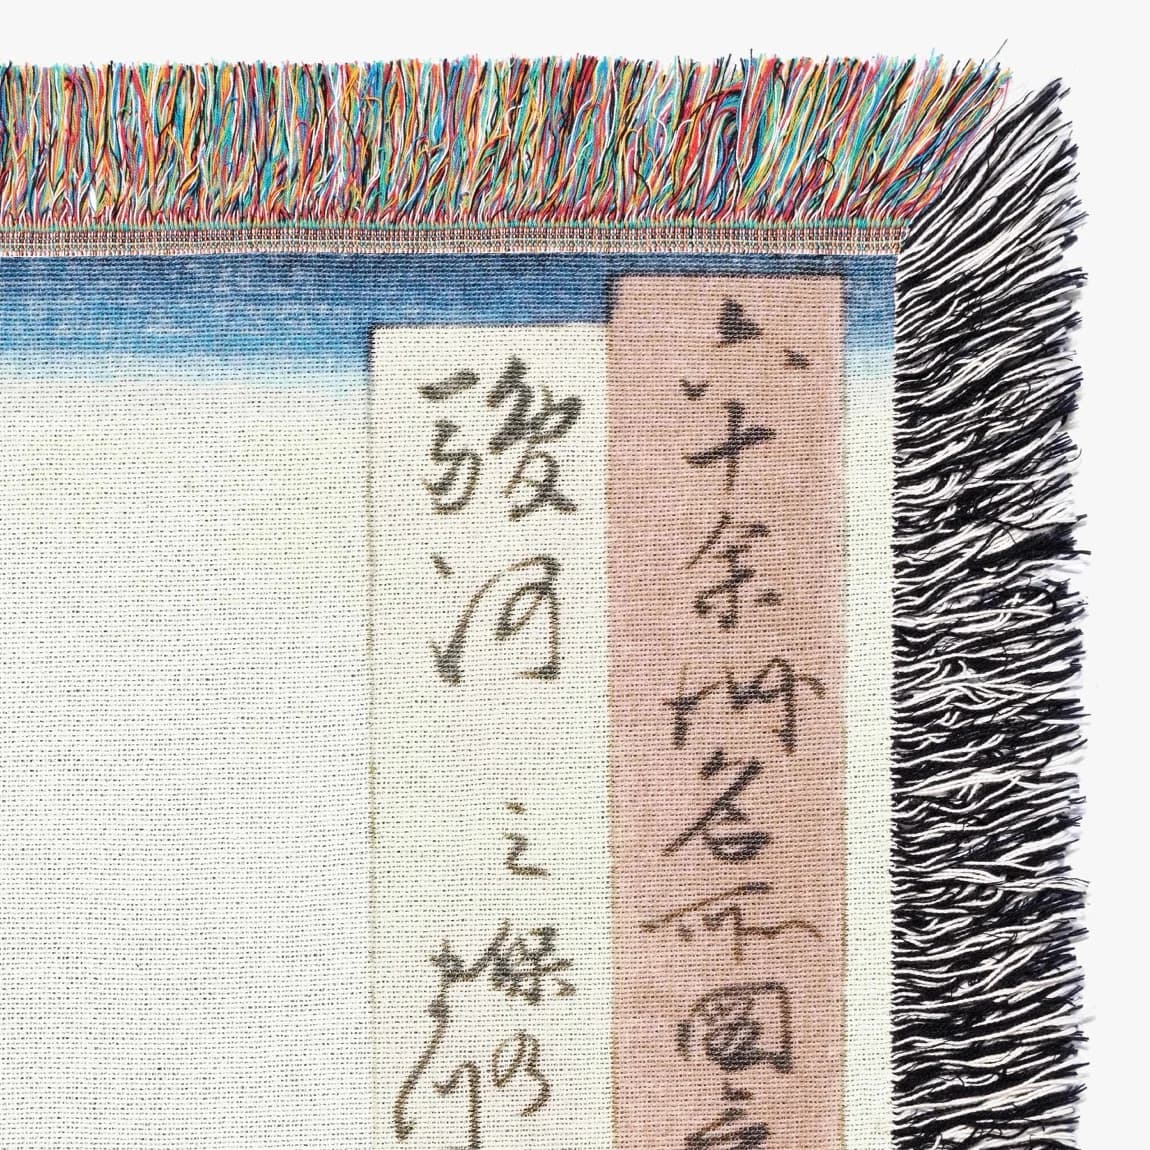 六十余州名所圖
駿河
三保の